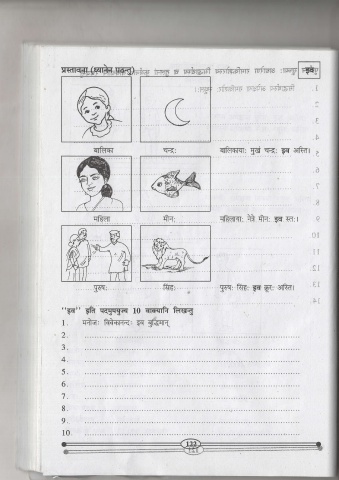 प्रस्तावना (ध्यानेन पठन्तु)
इव
बालिका चन्द्रः बालिकायाः मुखं चन्द्रः इव अस्ति।
महिला मीनः महिलायाः नेत्रे मीनः इव स्तः।
पुरुषः सिंहः पुरुषः सिंहः इव क्रूरः अस्ति।
"इव" इति पदमुपयुज्य 10 वाक्यानि लिखन्तु
1. मनोजः विवेकानन्दः इव बुद्धिमान्
2.
3.
4.
5.
6.
7.
8.
9.
10.
122